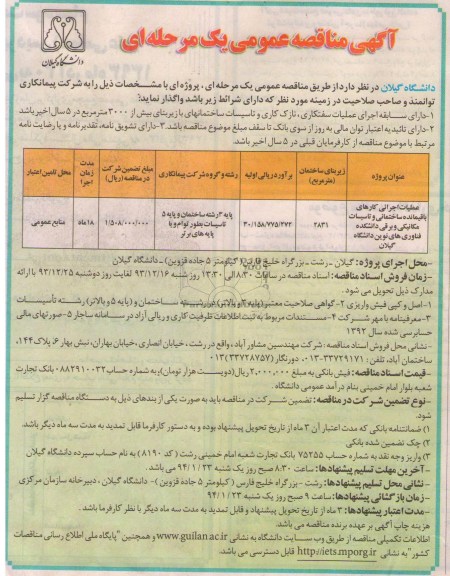 دانشگاه گیلان
آگهی مناقصه عمومی یک مرحله ای
دانشگاه گیلان در نظر دارد از طریق مناقصه عمومی یک مرحله ای، پروژه ای با مشخصات ذیل را به شرکت پیمانکاری
توانمند و صاحب صلاحیت در زمینه مورد نظر که دارای شرائط زیر باشد واگذار نماید؟
۱-دارای سابقه اجرای عملیات سفتکاری، نازک کاری و تاسیسات ساختمانهای با زیربنای بیش از ۳۰۰۰ مترمربع در ۵ سال اخیر باشد
۲-دارای تائیدیه اعتبار توان مالی به روز از سوی بانک تا سقف مبلغ موضوع مناقصه باشد. ۳-دارای تشویق نامه، تقدیرنامه و یا رضایت نامه
مرتبط با موضوع مناقصه از کارفرمایان قبلی در ۵ سال اخیر باشد.
عنوان پروژه | زیربنای ساختمان (مترمربع) | برآورد ریالی اولیه | رشته و گروه شرکت پیمانکاری | مبلغ تضمین شرکت در مناقصه (ریال) | مدت زمان اجرا | محل تامین اعتبار
عملیات اجرائی کارهای باقیمانده ساختمانی و تاسیسات مکانیکی و برقی دانشکده فناوری های نوین دانشگاه گیلان | ۲۸۳۱ | ۳۰/۱۵۸/۷۷۵/۲۷۲ | پایه ۴ رشته ساختمان و پایه ۵ تاسیسات بطور توام و یا پایه های برتر | ۱/۵۰۸/۰۰۰/۰۰۰ | ۱۸ ماه | منابع عمومی
-محل اجرای پروژه: گیلان - رشت - بزرگراه خلیج فارس (کیلومتر ۵ جاده قزوین) - دانشگاه گیلان
-زمان فروش اسناد مناقصه: اسناد مناقصه در ساعات ۸:۳۰ الی ۱۳:۳۰ روز شنبه ۹۳/۱۲/۱۶ لغایت روز دوشنبه ۹۳/۱۲/۲۵ با ارائه
مدارک ذیل تحویل می شود.
۱-اصل و کپی فیش واریزی ۲-گواهی صلاحیت معتبر (پایه ۴ و بالاتر) در رشته ساختمان و (پایه ۵ و بالاتر) رشته تأسیسات
۳-معرفینامه با مهر شرکت ۴-مستندات مربوط به ثبت اطلاعات ظرفیت کاری و ریالی آزاد در سامانه ساجار ۵-صورتهای مالی
حسابرسی شده سال ۱۳۹۲
-نشانی محل فروش اسناد مناقصه: شرکت مهندسین مشاور آباد، واقع در رشت، خیابان انصاری، خیابان بهاران، نبش بهار ۶، پلاک ۱۴۴،
ساختمان آباد، تلفن: ۳۳۷۲۹۱۷۱-۰۱۳، دورنگار (۰۱۳۳۳۷۲۸۷۵۷)
-قیمت اسناد مناقصه: فیش بانکی به مبلغ ۲،۰۰۰،۰۰۰ ریال (دویست هزار تومان) به شماره حساب ۰۸۸۲۹۱۰۰۳۲ بانک تجارت
شعبه بلوار امام خمینی بنام درآمد عمومی دانشگاه.
-نوع تضمین شرکت در مناقصه: تضمین شرکت در مناقصه باید به صورت یکی از بندهای ذیل به دستگاه مناقصه گزار تسلیم
شود.
۱) ضمانتنامه بانکی که مدت اعتبار آن ۳ ماه از تاریخ تحویل پیشنهاد بوده و به دستور کارفرما قابل تمدید به مدت سه ماه دیگر باشد.
۲) چک تضمین شده بانکی
۳) واریز وجه نقد به شماره حساب ۷۵۲۵۵ بانک تجارت شعبه امام خمینی رشت (کد ۸۱۹۰) به نام حساب سپرده دانشگاه گیلان
-آخرین مهلت تسلیم پیشنهادها: ساعت ۸:۳۰ صبح روز یک شنبه ۹۴/۱/۲۳ می باشد.
-نشانی محل تسلیم پیشنهادها: رشت - بزرگراه خلیج فارس (کیلومتر ۵ جاده قزوین) - دانشگاه گیلان، دبیرخانه سازمان مرکزی
-زمان بازگشائی پیشنهادها: ساعت ۹ صبح روز یک شنبه ۹۴/۱/۲۳
-مدت اعتبار پیشنهادها: ۳ ماه از تاریخ تحویل پیشنهاد و قابل تمدید به مدت سه ماه دیگر با نظر کارفرما باشد.
هزینه چاپ آگهی بر عهده برنده مناقصه می باشد.
اطلاعات تکمیلی مناقصه از طریق وب سایت دانشگاه به نشانی www.guilan.ac.ir و همچنین "پایگاه ملی اطلاع رسانی مناقصات
کشور" به نشانی http://iets.mporg.ir قابل دسترسی می باشد.